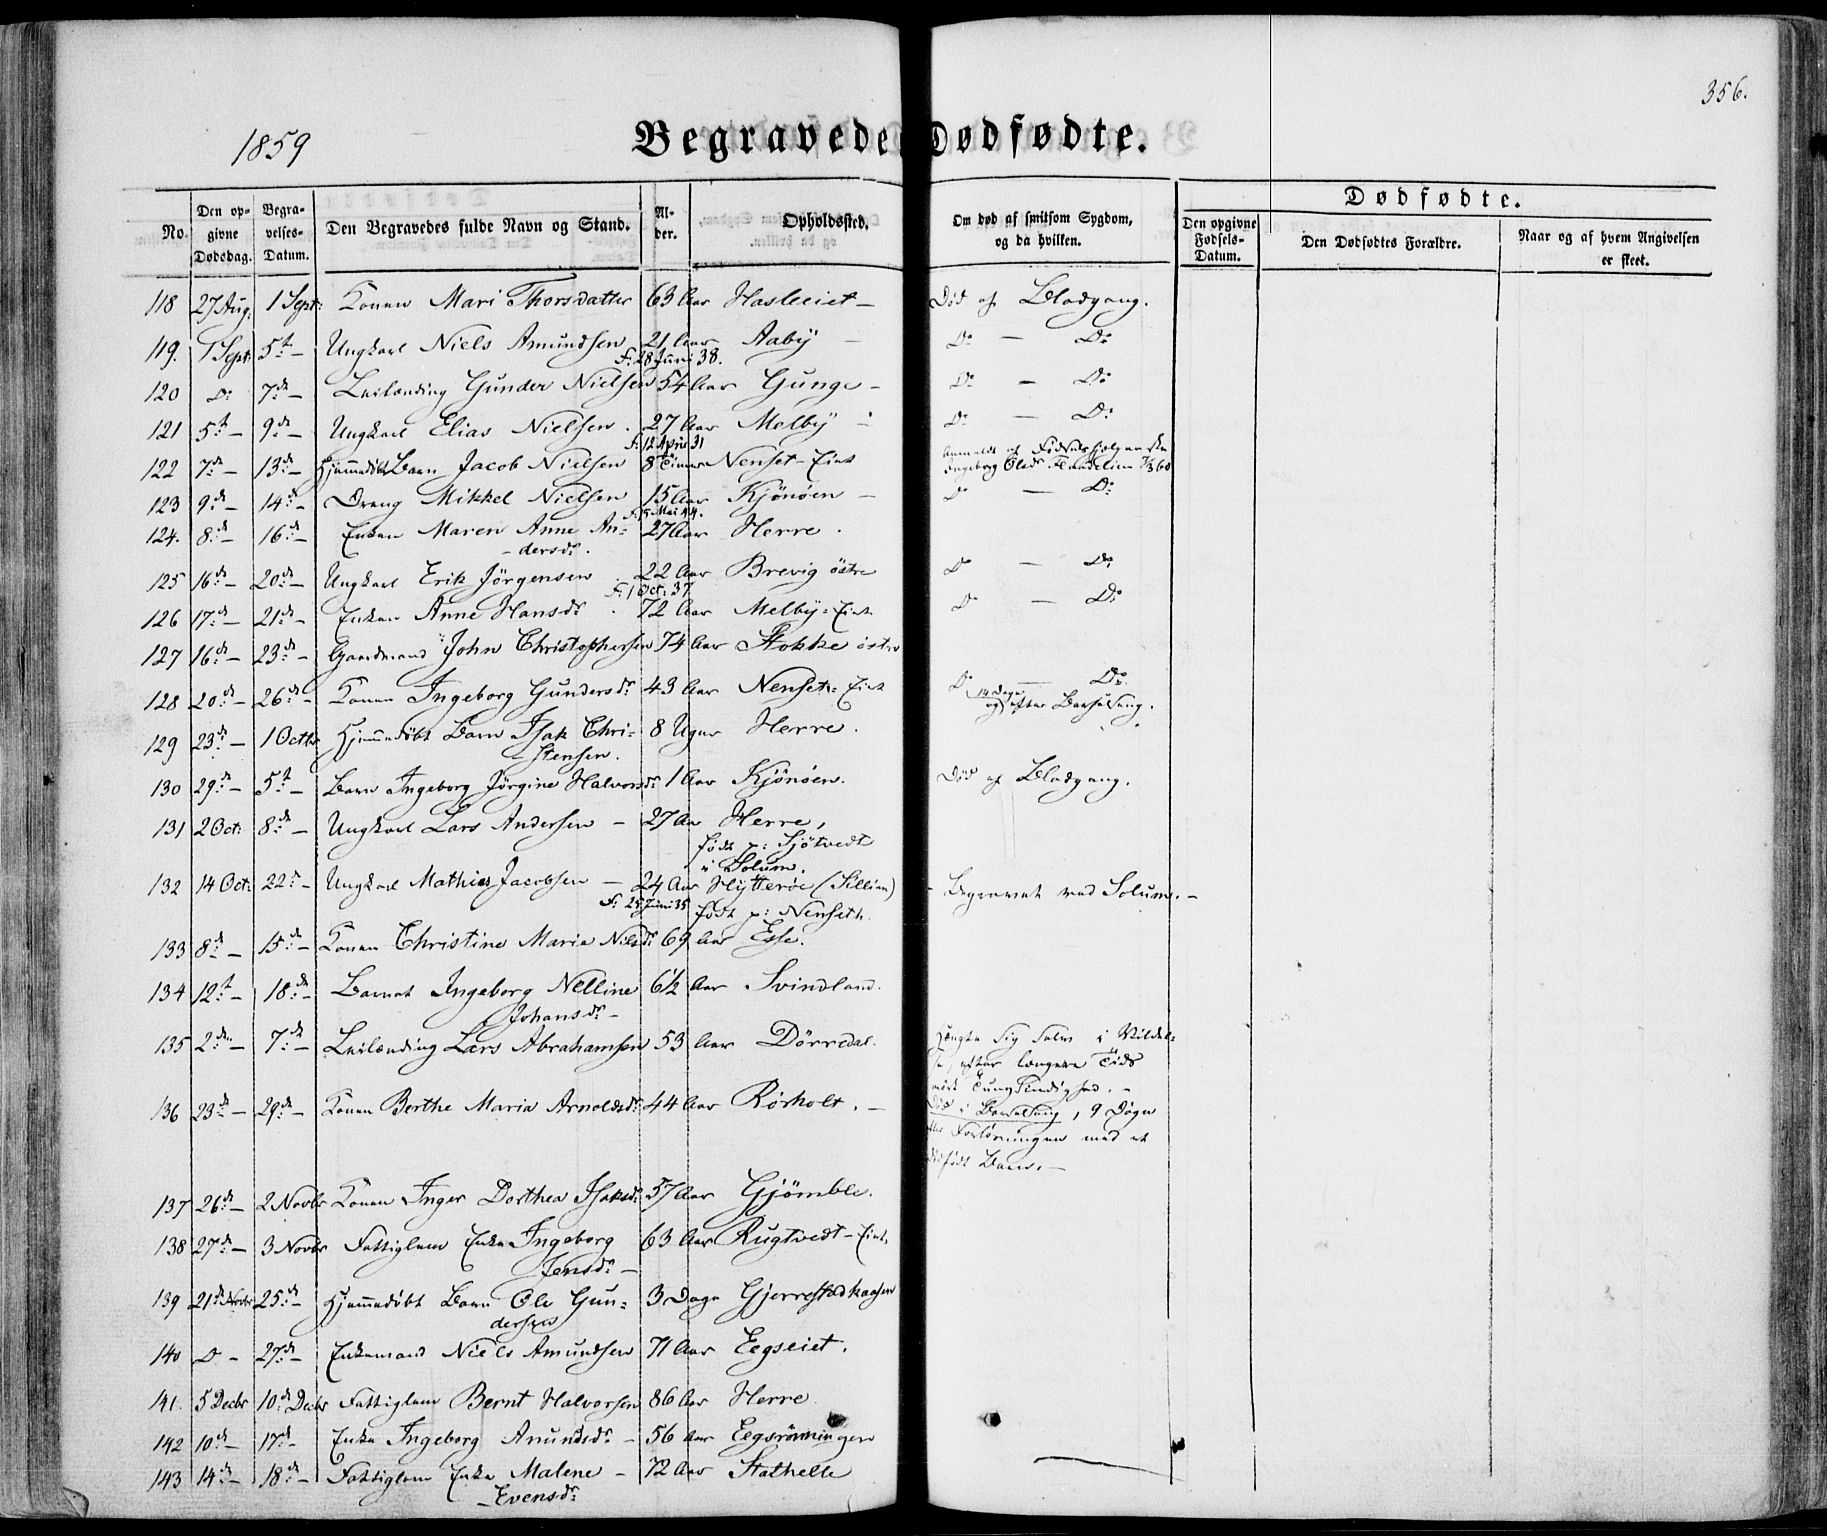 356.
1859
Begravede Dødfødte.
No. Den opgivne Dødsdag. Begravelses-Datum. Den Begravedes fulde Navn og Stand. Alder. Opholdssted. Om død af smitsom Sygdom, og da hvilken.
Dødfødte.
Den opgivne Fødsels-Datum. Den Dødfødtes Forældre. Naar og af hvem Angivelsen er skeet.
118 27 Aug: 1 Sept: Konen Mari Thorsdatter 63 Aar Hasleeiet – Død af Blodgang.
119. 1 Sept: 5t – Ungkarl Niels Amundsen 21 Aar Aaby – Do – Do
F. 28 Juni 38.
120 Do 7de – Leilænding Gunder Nielsen 54 Aar Gunge – Do – Do
121 5t – 9de – Ungkarl Elias Nielsen. 27 Aar Melby – Do – Do
F. 12 April 31
122 7de – 13de – Hjemmedøbt Barn Jacob Nielsen 8 Timer Nenset-Eiet Anmeldt af Fødselshjelperske
Ingeborg Olsd.
123 9de – 14de – Dreng Mikkel Nielsen 15 Aar Kjönöen – Do – Do
F. 15 Mai 44.
124. 8de – 16de – Enken Maren Anne An- 27 Aar Herre.
dersdr.
125 16de – 20de – Ungkarl Erik Jörgensen 22 Aar Brevig östre Do – Do
F. 1 Oct: 37
126 17de – 21de – Enken Anne Hansdr. 72 Aar Melby-Eiet Do – Do
127 16de – 23de – Gaardmand John Christophersen 74 Aar Stokke östre
128 20de – 26de – Konen Ingeborg Gundersdr 43 Aar Nenseth-Eiet Do – Do
og 14 Dage efter Barselseng.
129 23de – 1 Octbr Hjemmedøbt Barn Isak Chri- 8 Uger Herre.
stensen.
130 29de – 5t – Barn Ingeborg Jörgine Halvorsdr 1 Aar Kjönöen. Død af Blodgang.
131 2 Oct: 8de – Ungkarl Lars Andersen – 27 Aar Herre,
født p: Sjötvedt
i Solum.
132 14 Oct: 22de – Ungkarl Mathias Jacobsen – 24 Aar Hytteröe (Sillien) – Begravet ved Solum. –
F. 25 Juni 35 født p: Nenseth.
133 8de – 15de – Konen Christine Marie Nilsdr 69 Aar Esse.
134 12t – 18de – Barnet Ingeborg Nelline 6 1/2 Aar Svindland.
Johansdr –
135 2den – 7de – Leilænding Lars Abrahamsen 53 Aar Dörredal. Hængte sig selv i Vildel-
se, efter længere Tids
Tungsindighed. –
136 23de – 29de – Konen Berthe Maria Arnoldsdr 44 Aar Rörholt. – Død i Barselseng, 9 Døgn
efter Forløsningen med et
dødfødt Barn. –
137 26de – 2 Novbr Konen Inger Dorthea Isaksdr 57 Aar Gjömble.
138 27de – 3 Novbr Fattiglem Enke Ingeborg 63 Aar Rugtvedt-Eiet.
Jensdr –
139 21de Novbr 25de – Hjemmedøbt Barn Ole Gun- 3 Dage Gjerrestadkaasen
dersen
140 Do – 27de – Enkemand Niels Amundsen 71 Aar Eegseiet.
141. 5 Decbr 10de Decbr Fattiglem Bernt Halvorsen 86 Aar Herre
142 10de – 17de – Enke Ingeborg Amundsdr – 56 Aar Eegsrönningen
143 14de – 18de – Fattiglem Enke Malene – 72 Aar Stathelle
– Evensdr